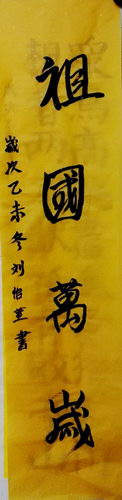 祖國萬歲
歲次乙未冬刘怡芝書